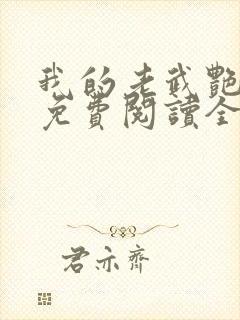 我的老武艷
免費閱讀全
君亦齊